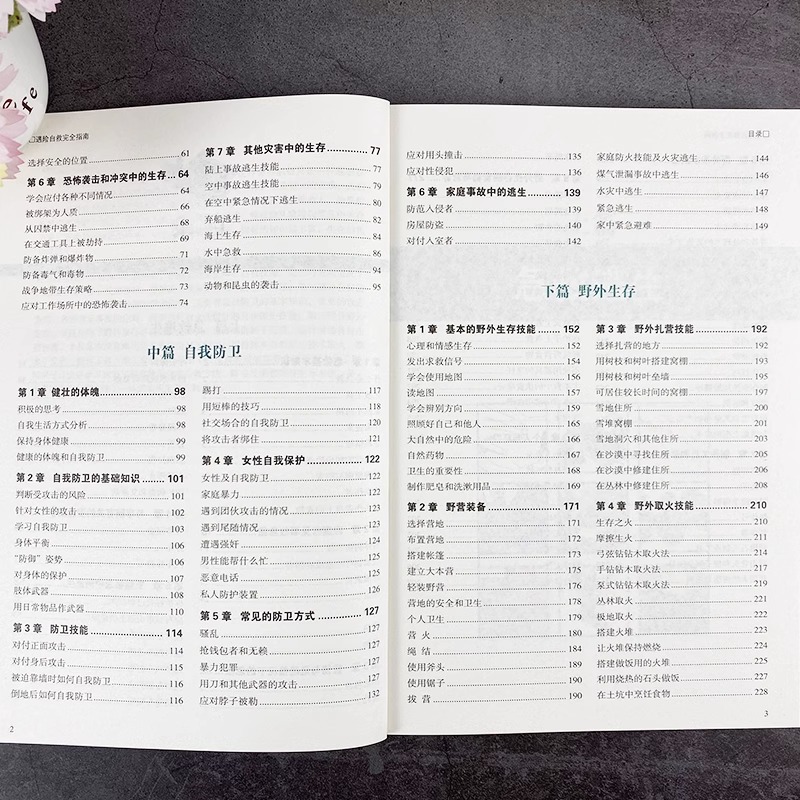 遇险自救完全指南
选择安全的位置 61
第6章 恐怖袭击和冲突中的生存 64
学会应付各种不同情况 64
被绑架为人质 66
从囚禁中逃生 68
在交通工具上被劫持 69
防备炸弹和爆炸物 71
防备毒气和毒物 72
战争地带生存策略 73
应对工作场所中的恐怖袭击 74
第7章 其他灾害中的生存 77
陆上事故逃生技能 77
空中事故逃生技能 79
在空中紧急情况下逃生 80
弃船逃生 82
海上生存 84
水中急救 86
海岸生存 94
动物和昆虫的袭击 95
中篇 自我防卫
第1章 健壮的体魄 98
积极的思考 98
自我生活方式分析 98
保持身体健康 99
健康的体魄和自我防卫 99
第2章 自我防卫的基础知识 101
判断受攻击的风险 101
针对女性的攻击 102
学习自我防卫 103
身体平衡 106
“防御”姿势 106
对身体的保护 107
肢体武器 108
用日常物品作武器 110
第3章 防卫技能 114
对付正面攻击 114
对付身后攻击 115
被迫靠墙时如何自我防卫 116
倒地后如何自我防卫 116
踢打 117
用短棒的技巧 118
社交场合的自我防卫 120
将攻击者绑住 121
第4章 女性自我保护 122
女性及自我防卫 122
家庭暴力 122
遇到团伙攻击的情况 123
遇到尾随情况 123
遭遇强奸 124
男性能帮什么忙 125
恶意电话 125
私人防护装置 126
第5章 常见的防卫方式 127
骚乱 127
抢钱包者和无赖 127
暴力犯罪 127
用刀和其他武器的攻击 127
应对脖子被勒 132
2
目录
应对用头撞击 135
应对性侵犯 136
第6章 家庭事故中的逃生 139
防范入侵者 139
房屋防盗 140
对付入室者 142
家庭防火技能及火灾逃生 144
煤气泄漏事故中逃生 146
水灾中逃生 147
紧急逃生 148
家中紧急避难 149
下篇 野外生存
第1章 基本的野外生存技能 152
心理和情感生存 152
发出求救信号 154
学会使用地图 156
读地图 157
学会辨别方向 159
照顾好自己和他人 165
大自然中的危险 166
自然药物 167
卫生的重要性 168
制作肥皂和洗漱用品 169
第2章 野营装备 171
选择营地 171
布置营地 172
搭建帐篷 173
建立大本营 175
轻装野营 176
营地的安全和卫生 178
个人卫生 179
营火 180
绳结 184
使用斧头 189
使用锯子 190
拔营 190
第3章 野外扎营技能 192
选择扎营的地方 192
用树枝和树叶搭建窝棚 193
用树枝和树叶垒墙 195
可居住较长时间的窝棚 197
雪地住所 200
雪堆窝棚 201
雪地洞穴和其他住所 203
在沙漠中寻找住所 205
在沙漠中修建住所 206
在丛林中修建住所 208
第4章 野外取火技能 210
生存之火 210
摩擦生火 211
弓弦钻钻木取火法 214
手钻钻木取火法 217
泵式钻钻木取火法 219
丛林取火 221
极地取火 222
搭建火堆 223
让火堆保持燃烧 224
搭建做饭用的火堆 225
利用烧热的石头做饭 227
在土坑中烹饪食物 228
3